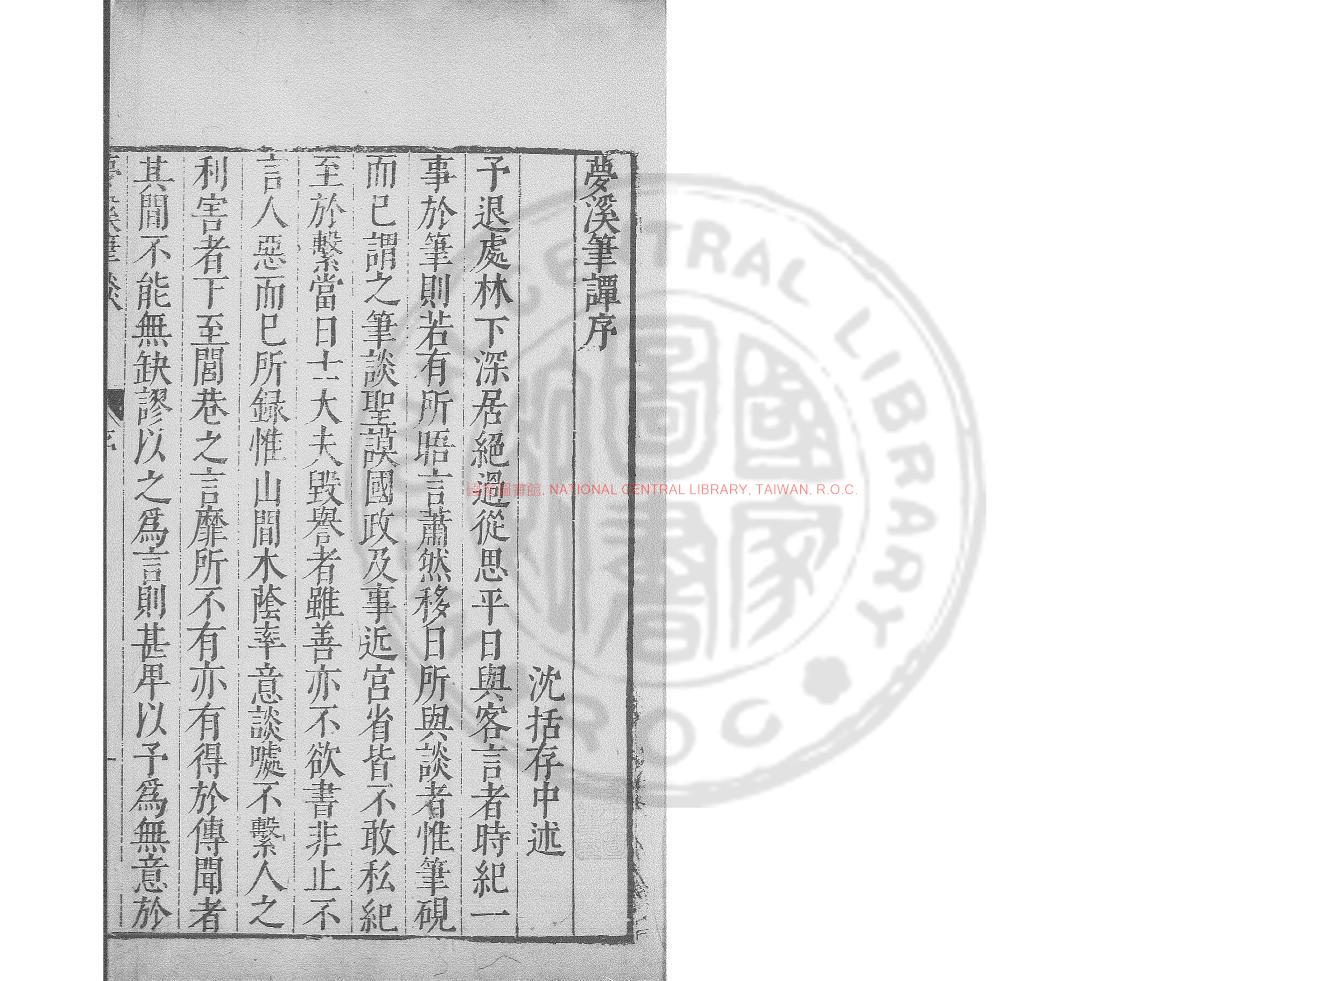 夢溪筆譚序
沈括存中述
予退處林下深居絕過從思平日與客言者時紀一
事於筆則若有所晤言蕭然移日所與談者惟筆硯
而已謂之筆談聖謨國政及事近宮省皆不敢私紀
至於繫當日士大夫毀譽者雖善亦不欲書非止不
言人惡而已所録惟山間木蔭率意談噱不繫人之
利害者下至閭巷之言靡所不有亦有得於傳聞者
其間不能無缺謬以之爲言則甚卑以予爲無意於
夢溪筆談
序
一
國家圖書館, NATIONAL CENTRAL LIBRARY, TAIWAN, R.O.C.